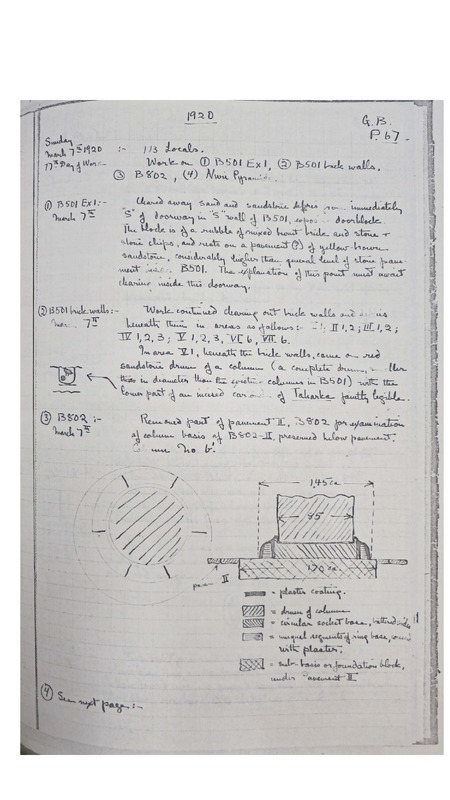 1920
G.B.
P. 67.
Sunday
March 7th 1920 :- 113 Locals.
17th Day of Work Work on ① B501 Ex1, ② B501 brick walls.
③ B802, (4) Nuri Pyramid
① B501 Ex1:- Cleared away sand and sandstone debris from immediately
March 7th "S" of doorway in "S" wall of B501, doorblock.
The block is of a rubble of mixed burnt brick and stone +
stone chips, and rests on a pavement (?) of yellow-brown
sandstone, considerably higher than general level of stone pave-
ment B501. The explanation of this point must await
clearing inside this doorway.
② B501 brick walls:- Work continued clearing out brick walls and
7th beneath them in areas as follows:- II 1,2; III 1,2;
IV 1,2,3; V 1,2,3, VI 6, VII 6.
In area V1, beneath the brick walls, came on red
sandstone drum of a column (a complete drum,
this in diameter than the columns in B501) with the
lower part of an incised of Taharka faintly legible.
③ B802 :- Removed part of pavement II, B802 for examination
March 7th of column basis of B802-II, preserved below pavement.
No 6.
145 ca
85
170 ca.
II
= plaster coating.
= drum of column
= circular socket base, battered sides
= unequal segments of ring base,
with plaster.
= sub-basis or foundation block,
under Pavement II
④ See next page:-